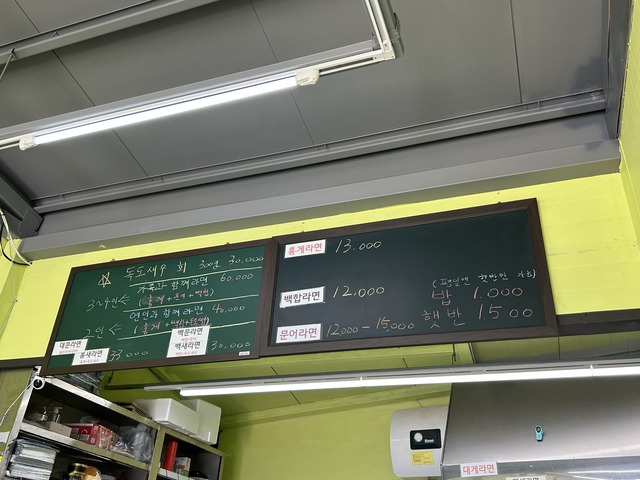 독도새우 회 30,000
가족과 함께라면 60,000
3~4인 ← (홍게+문어+백합)
연인과 함께라면 40,000
2인 ←
대문라면
홍새라면
33000
백문라면
백새라면
30,000
홍게라면 13.000
백합라면 12,000
문어라면 12000-15,000
(평일엔 햇반만 가능)
밥 1.000
햇반 1500
대게라면